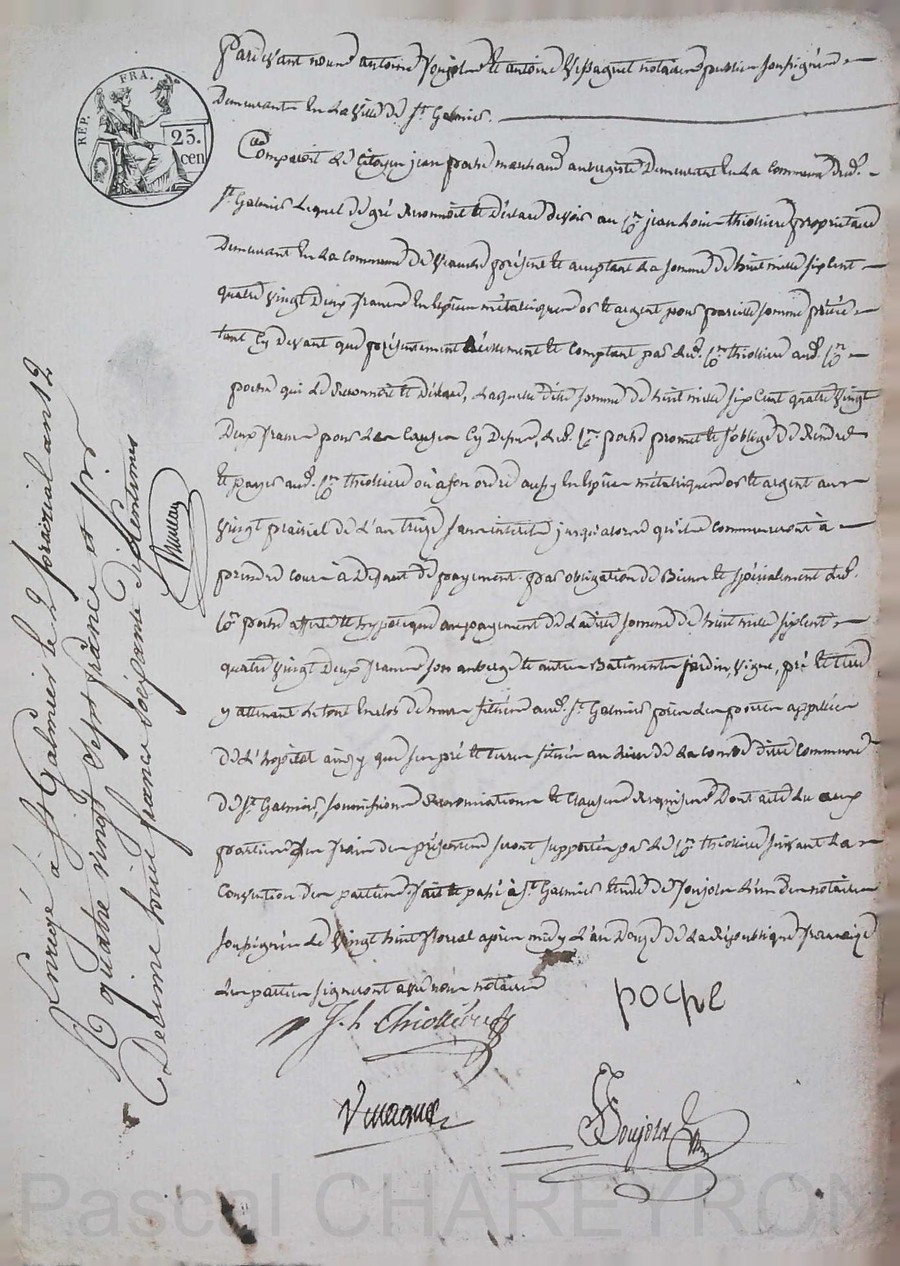 REP. FRA.
25.
cen
Pardevant nous antoine Soujols et antoine notaires publics soussignés
Demeurants en la ville de St Galmier.
Comparoit le citoyen jean poche marchand aubergiste Demeurant en la commune dud.
St Galmier lequel de gré Reconnoit et déclare devoir au Cn jean Louis thiolliere propriétaire
Demeurant en la commune de present et acceptant la somme de huit mille six cent
quatre vingt deux francs en espèces métaliques or et argent pour pareille somme prêtée
cy devant que présentement réellement et comptant par led. Cn thiolliere aud. Cn
poche qui le Reconnoit et Déclare, Laquelle dite somme de huit mille six cent quatre vingt
Deux francs pour les causes cy dessus, led. Cn poche promet et s'oblige de Rendre
et payer aud. Cn thiolliere ou à son ordre aussy en espèces métaliques or et argent au
vingt prairiel de l'an treize sans interets jusqu'alors qu'ils commenceront à
prendre cours à Défaut de payement. par obligation de Biens et spécialement led.
Cn poche affecte et hypotèque au payement de ladite somme de huit mille six cent
quatre vingt deux francs son auberge et autres Batiments jardin, vigne, pré et terre
y attenant le tout enclos de murs situés aud. St Galmier près les portes appellées
de L'hopital ainsy que ses pré et terres situés au lieu de la combe dite commune
de St Galmier, soumissions Renonciations et clauses Requises Dont acte lu aux
parties Les frais des présentes seront supportés par le Cn thiolliere suivant la
Convention des parties fait et passé à St Galmier etude de Soujols L'un des notaires
soussignés le vingt huit floreal après midy L'an Douze de la République française
Les parties signeront avec nous notaires
poche
J. L. Thiolliere
Soujols
Enregé à St Galmier le 2 prairial an 12
R quatre vingt sept francs et pr
Decime huit francs soixante dix centimes
Pascal CHAREYRON